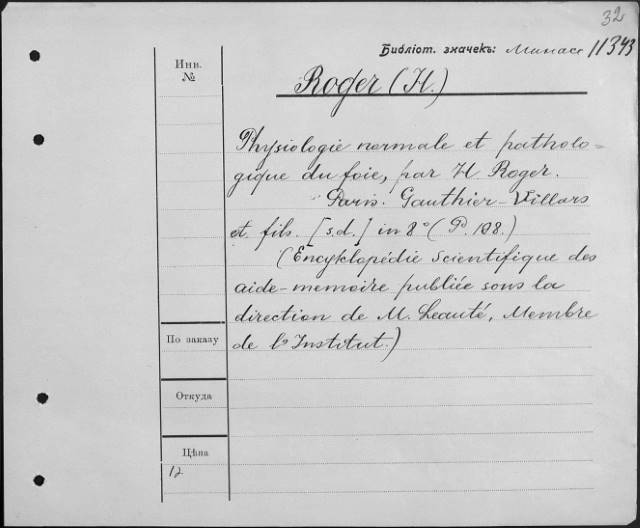 32
Библіот. значекъ: Минасс 11343
Инв.
№
Roger (H.)
Physiologie normale et patholo-
gique du foie, par H Roger.
Paris. Gauthier-Villars
et fils. [s.d.] in 8° (P. 198.)
(Encyklopédie scientifique des
aide-memoire publiée sous la
direction de M. Leauté, Membre
de l'Institut.)
По заказу
Откуда
Цѣна
12